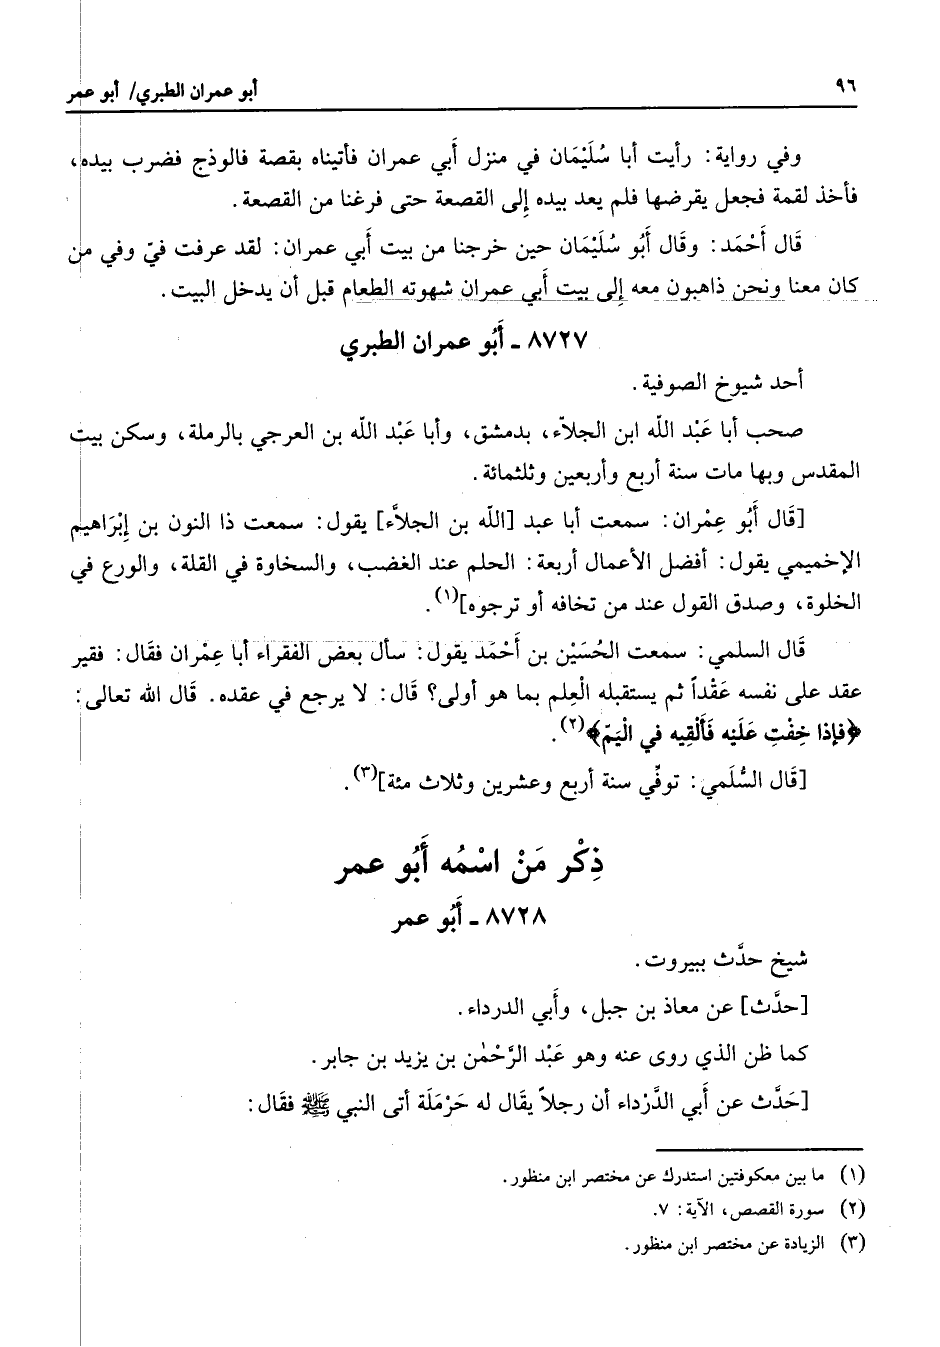 ٩٦
أبو عمران الطبري/ أبو عمر
وفي رواية: رأيت أبا سُلَيْمَان في منزل أَبي عمران فأتيناه بقصة فالوذج فضرب بيده،
فأخذ لقمة فجعل يقرضها فلم يعد بيده إلى القصعة حتى فرغنا من القصعة.
قَال أَحْمَد: وقَال أَبُو سُلَيْمَان حين خرجنا من بيت أَبي عمران: لقد عرفت فيّ وفي من
كان معنا ونحن ذاهبون معه إلى بيت أَبي عمران شهوته الطعام قبل أن يدخل البيت.
٨٧٢٧ - أَبُو عمران الطبري
أحد شيوخ الصوفية.
صحب أبا عَبْد اللّه ابن الجلاّء، بدمشق، وأبا عَبْد اللّه بن العرجي بالرملة، وسكن بيت
المقدس وبها مات سنة أربع وأربعين وثلثمائة.
[قَال أَبُو عِمْران: سمعت أبا عبد [اللّه بن الجلاَّء] يقول: سمعت ذا النون بن إِبْرَاهيم
الإخميمي يقول: أفضل الأعمال أربعة: الحلم عند الغضب، والسخاوة في القلة، والورع في
الخلوة، وصدق القول عند من تخافه أو ترجوه](١).
قَال السلمي: سمعت الحُسَيْن بن أَحْمَد يقول: سأل بعض الفقراء أبا عِمْران فقَال: فقير
عقد على نفسه عَقْداً ثم يستقبله الْعِلم بما هو أولى؟ قَال: لا يرجع في عقده. قَال الله تعالى:
﴿فإذا خِفْتِ عَلَيْه فَأَلْقِيه في الْيَمّ﴾(٢).
[قَال السُّلَمي: توفّي سنة أربع وعشرين وثلاث مئة](٣).
ذِكْر مَنْ اسْمُه أَبُو عمر
٨٧٢٨ - أَبُو عمر
شيخ حدَّث ببيروت.
[حدَّث] عن معاذ بن جبل، وأَبي الدرداء.
كما ظن الذي روى عنه وهو عَبْد الرَّحْمٰن بن يزيد بن جابر.
[حَدَّث عن أَبي الدَّرْداء أن رجلاً يقَال له حَرْمَلَة أتى النبي ﷺ فقَال:
(١) ما بين معكوفتين استدرك عن مختصر ابن منظور.
(٢) سورة القصص، الآية: ٧.
(٣) الزيادة عن مختصر ابن منظور.